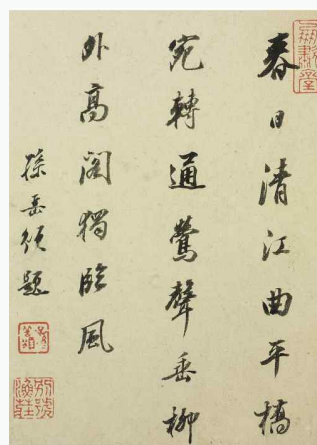 春日清江曲平橋
宛轉通鶯聲垂柳
外高閣獨臨風
孫岳頒題